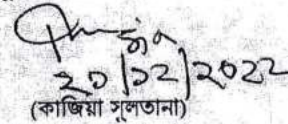 ২০/১২/২০২২
(কাজিয়া সুলতানা)